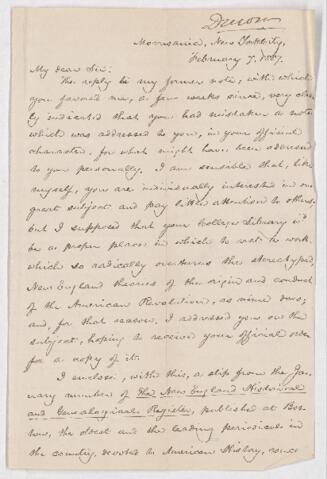 Dawson
Morrisania, New York City,
February 7, 1887.
My dear Sir:
The reply to my former note, with which
you favored me, a few weeks since, very clear-
ly indicated that you had mistaken a note
which was addressed to you, in your official
character, for which might have been addressed
to you personally. I am sensible that, like
myself, you are individually interested in one
great subject and pay little attention to others;
but I supposed that your College Library w'd
be a proper place in which to rest a work
which so radically overturns the stereotyped
New England theories of the origin and conduct
of the American Revolution, as mine does;
and, for that reason, I addressed you on the
subject, hoping to receive your official order
for a copy of it.
I enclose, with this, a slip from the Jan-
uary number of The New England Historical
and Genealogical Register, published at Bos-
ton, the oldest and the leading periodical in
the country, devoted to American History,